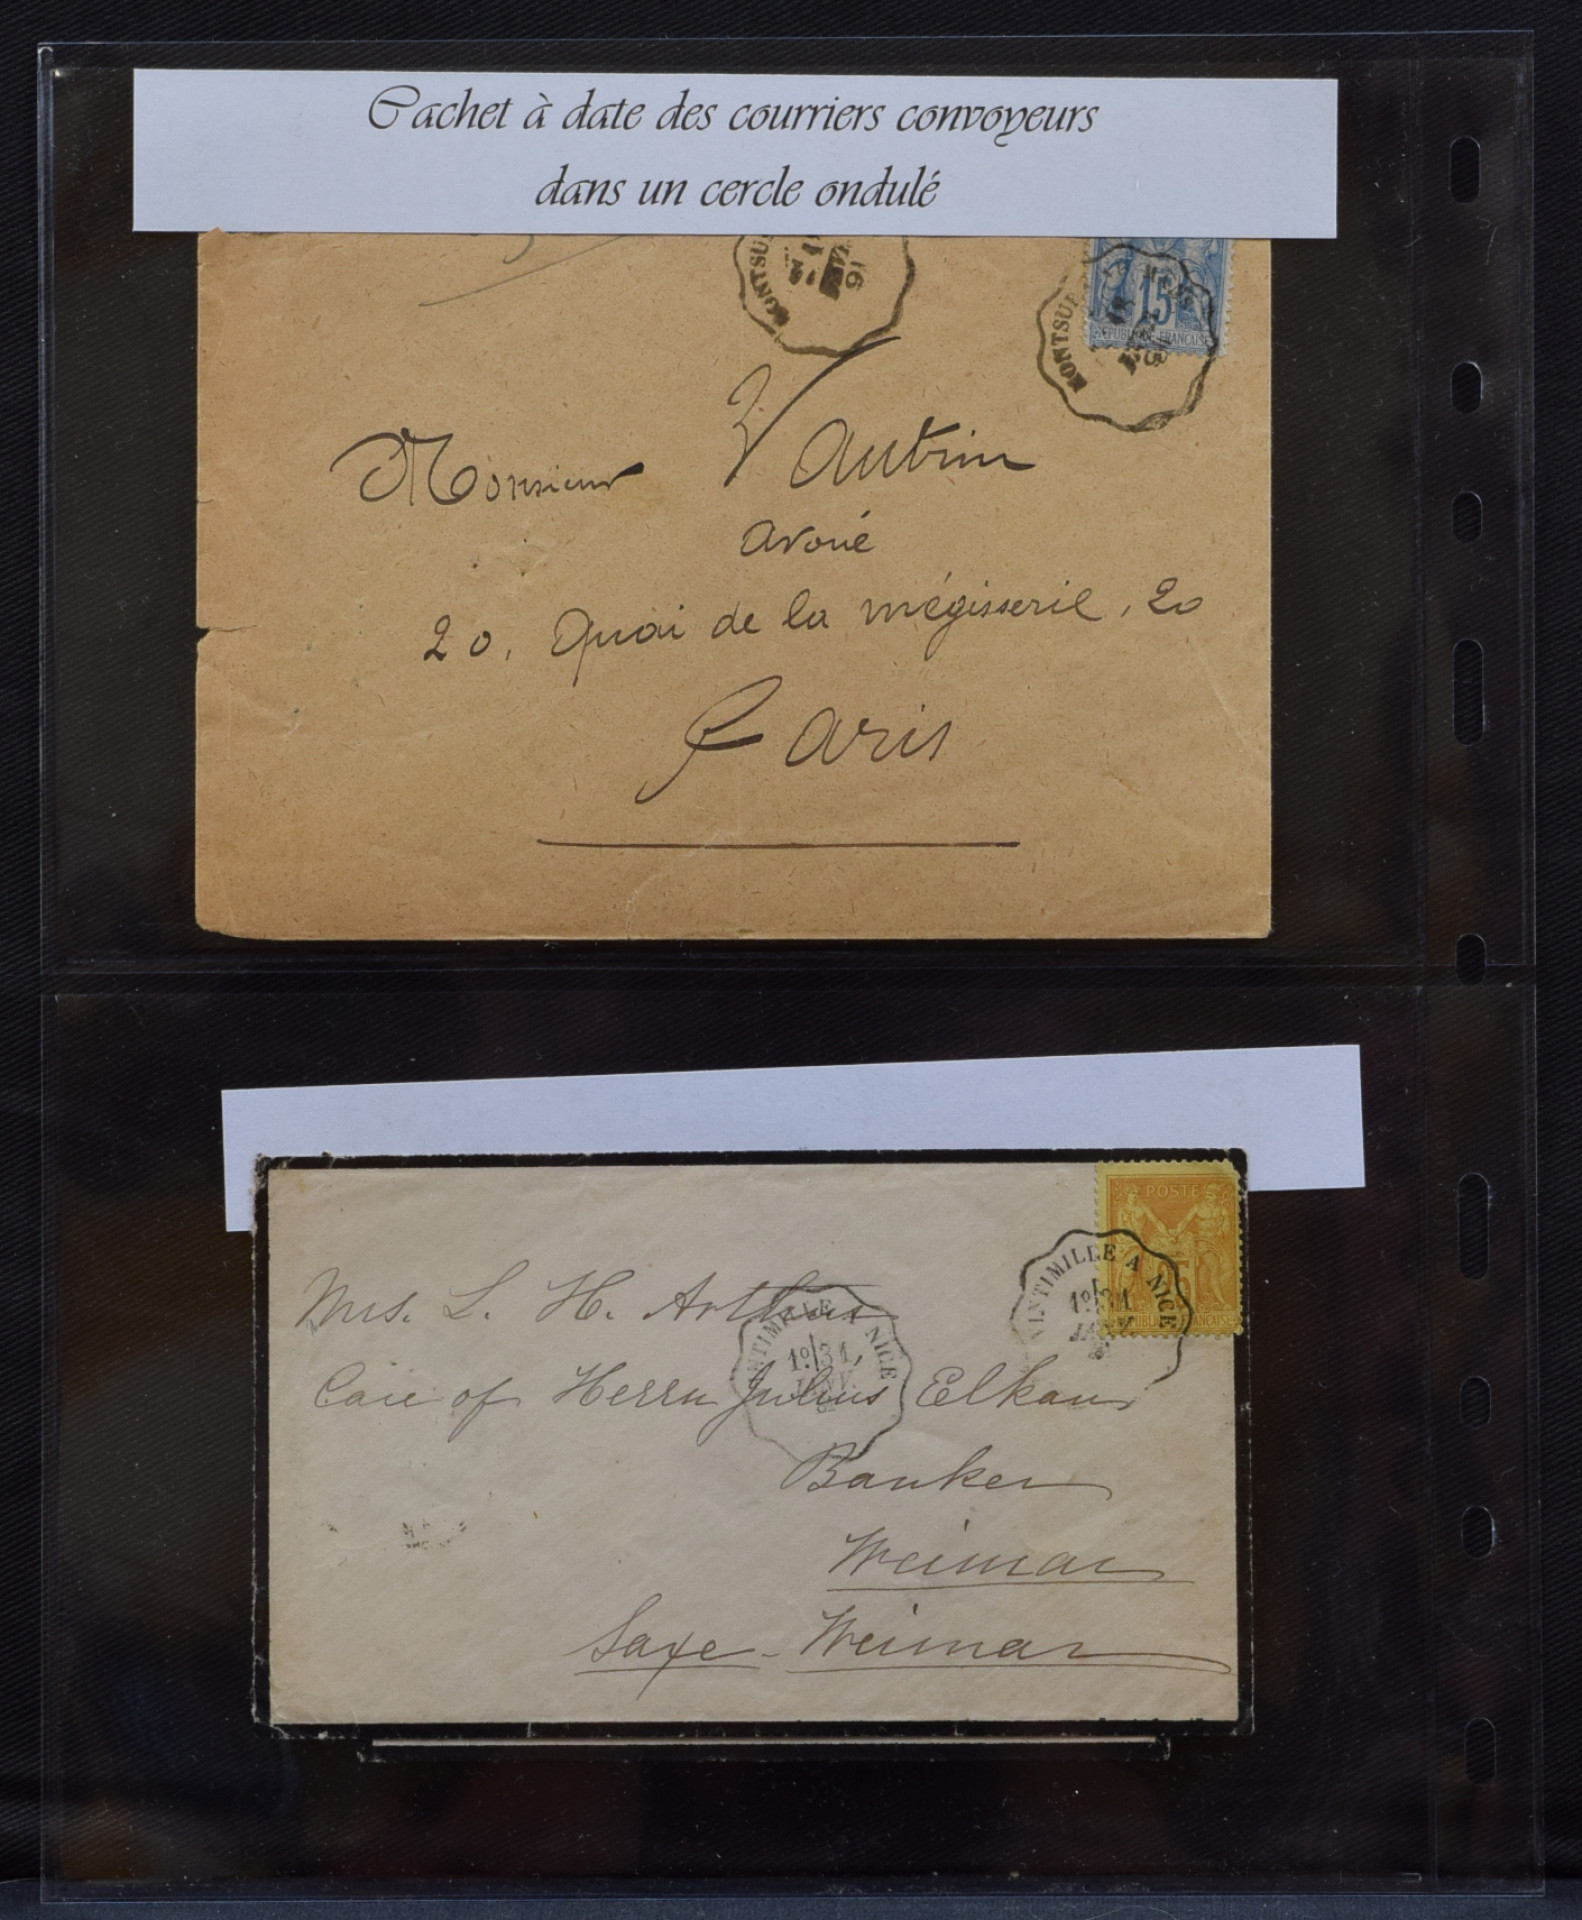 Cachet à date des courriers convoyeurs
dans un cercle ondulé
MONTSUR
91
15
REPUBLIQUE FRANCAISE
MONTSUR
Monsieur Vautrin
avoué
20, Quai de la mégisserie, 20
Paris
POSTE
25
REPUBLIQUE FRANCAISE
VINTIMILLE A NICE
1º 31
JANV.
81
Mrs. L. H. Arthur
VINTIMILLE A NICE
1º 31
JANV.
81
Care of Herrn Julius Elkan
Banker
Weimar
Saxe-Weimar